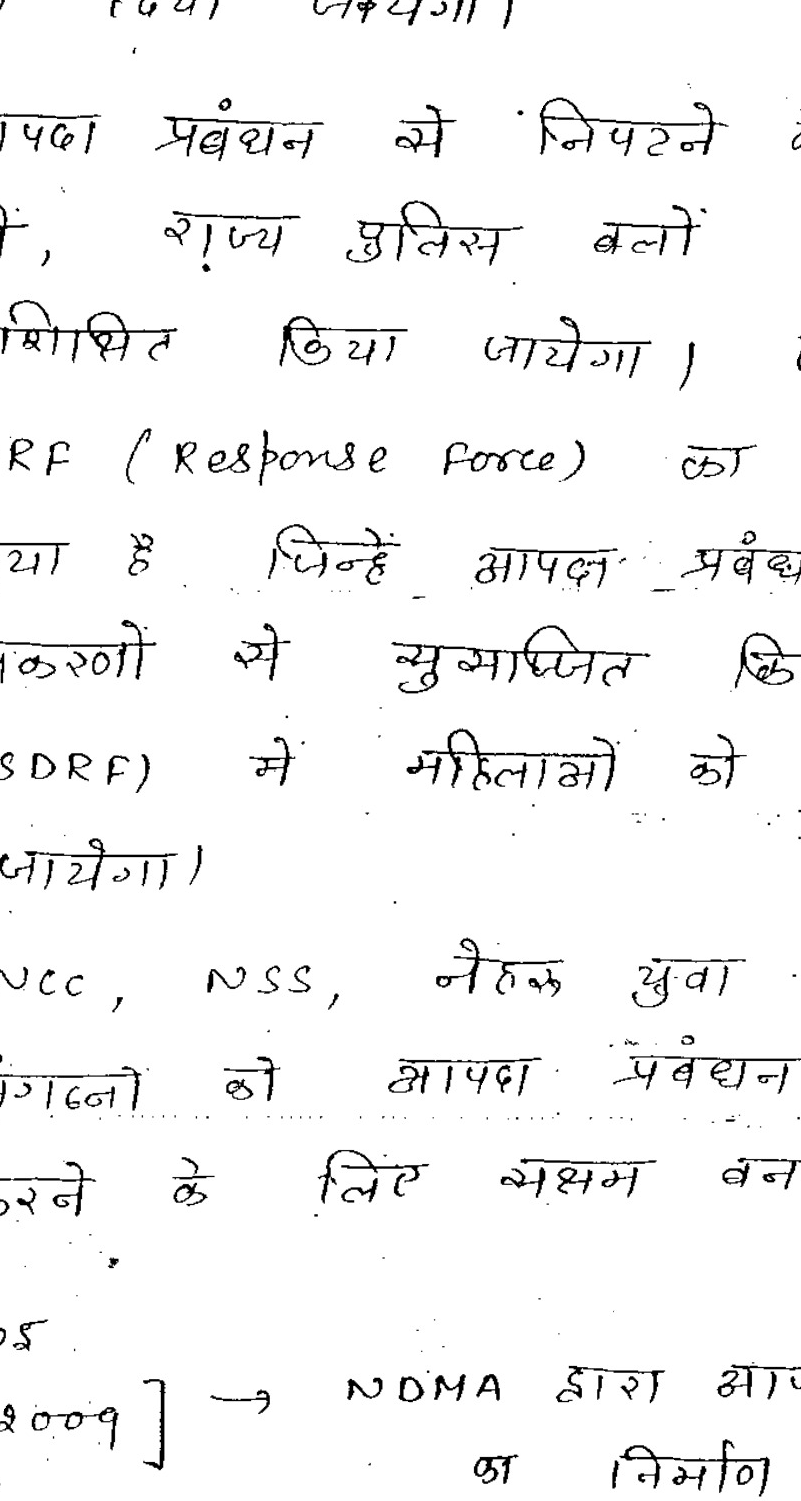 दिया जायेगा।
पदा प्रबंधन से निपटने
में, राज्य पुलिस बलों
शिक्षित किया जायेगा।
RF (Response Force) का
या है जिन्हें आपदा प्रबंध
करणों से सुसज्जित कि
SDRF) में महिलाओं को
जायेगा।
NCC, NSS, नेहरू युवा
गठनों को आपदा प्रबंधन
करने के लिए सक्षम बन
2009] → NDMA द्वारा आप
का निर्माण